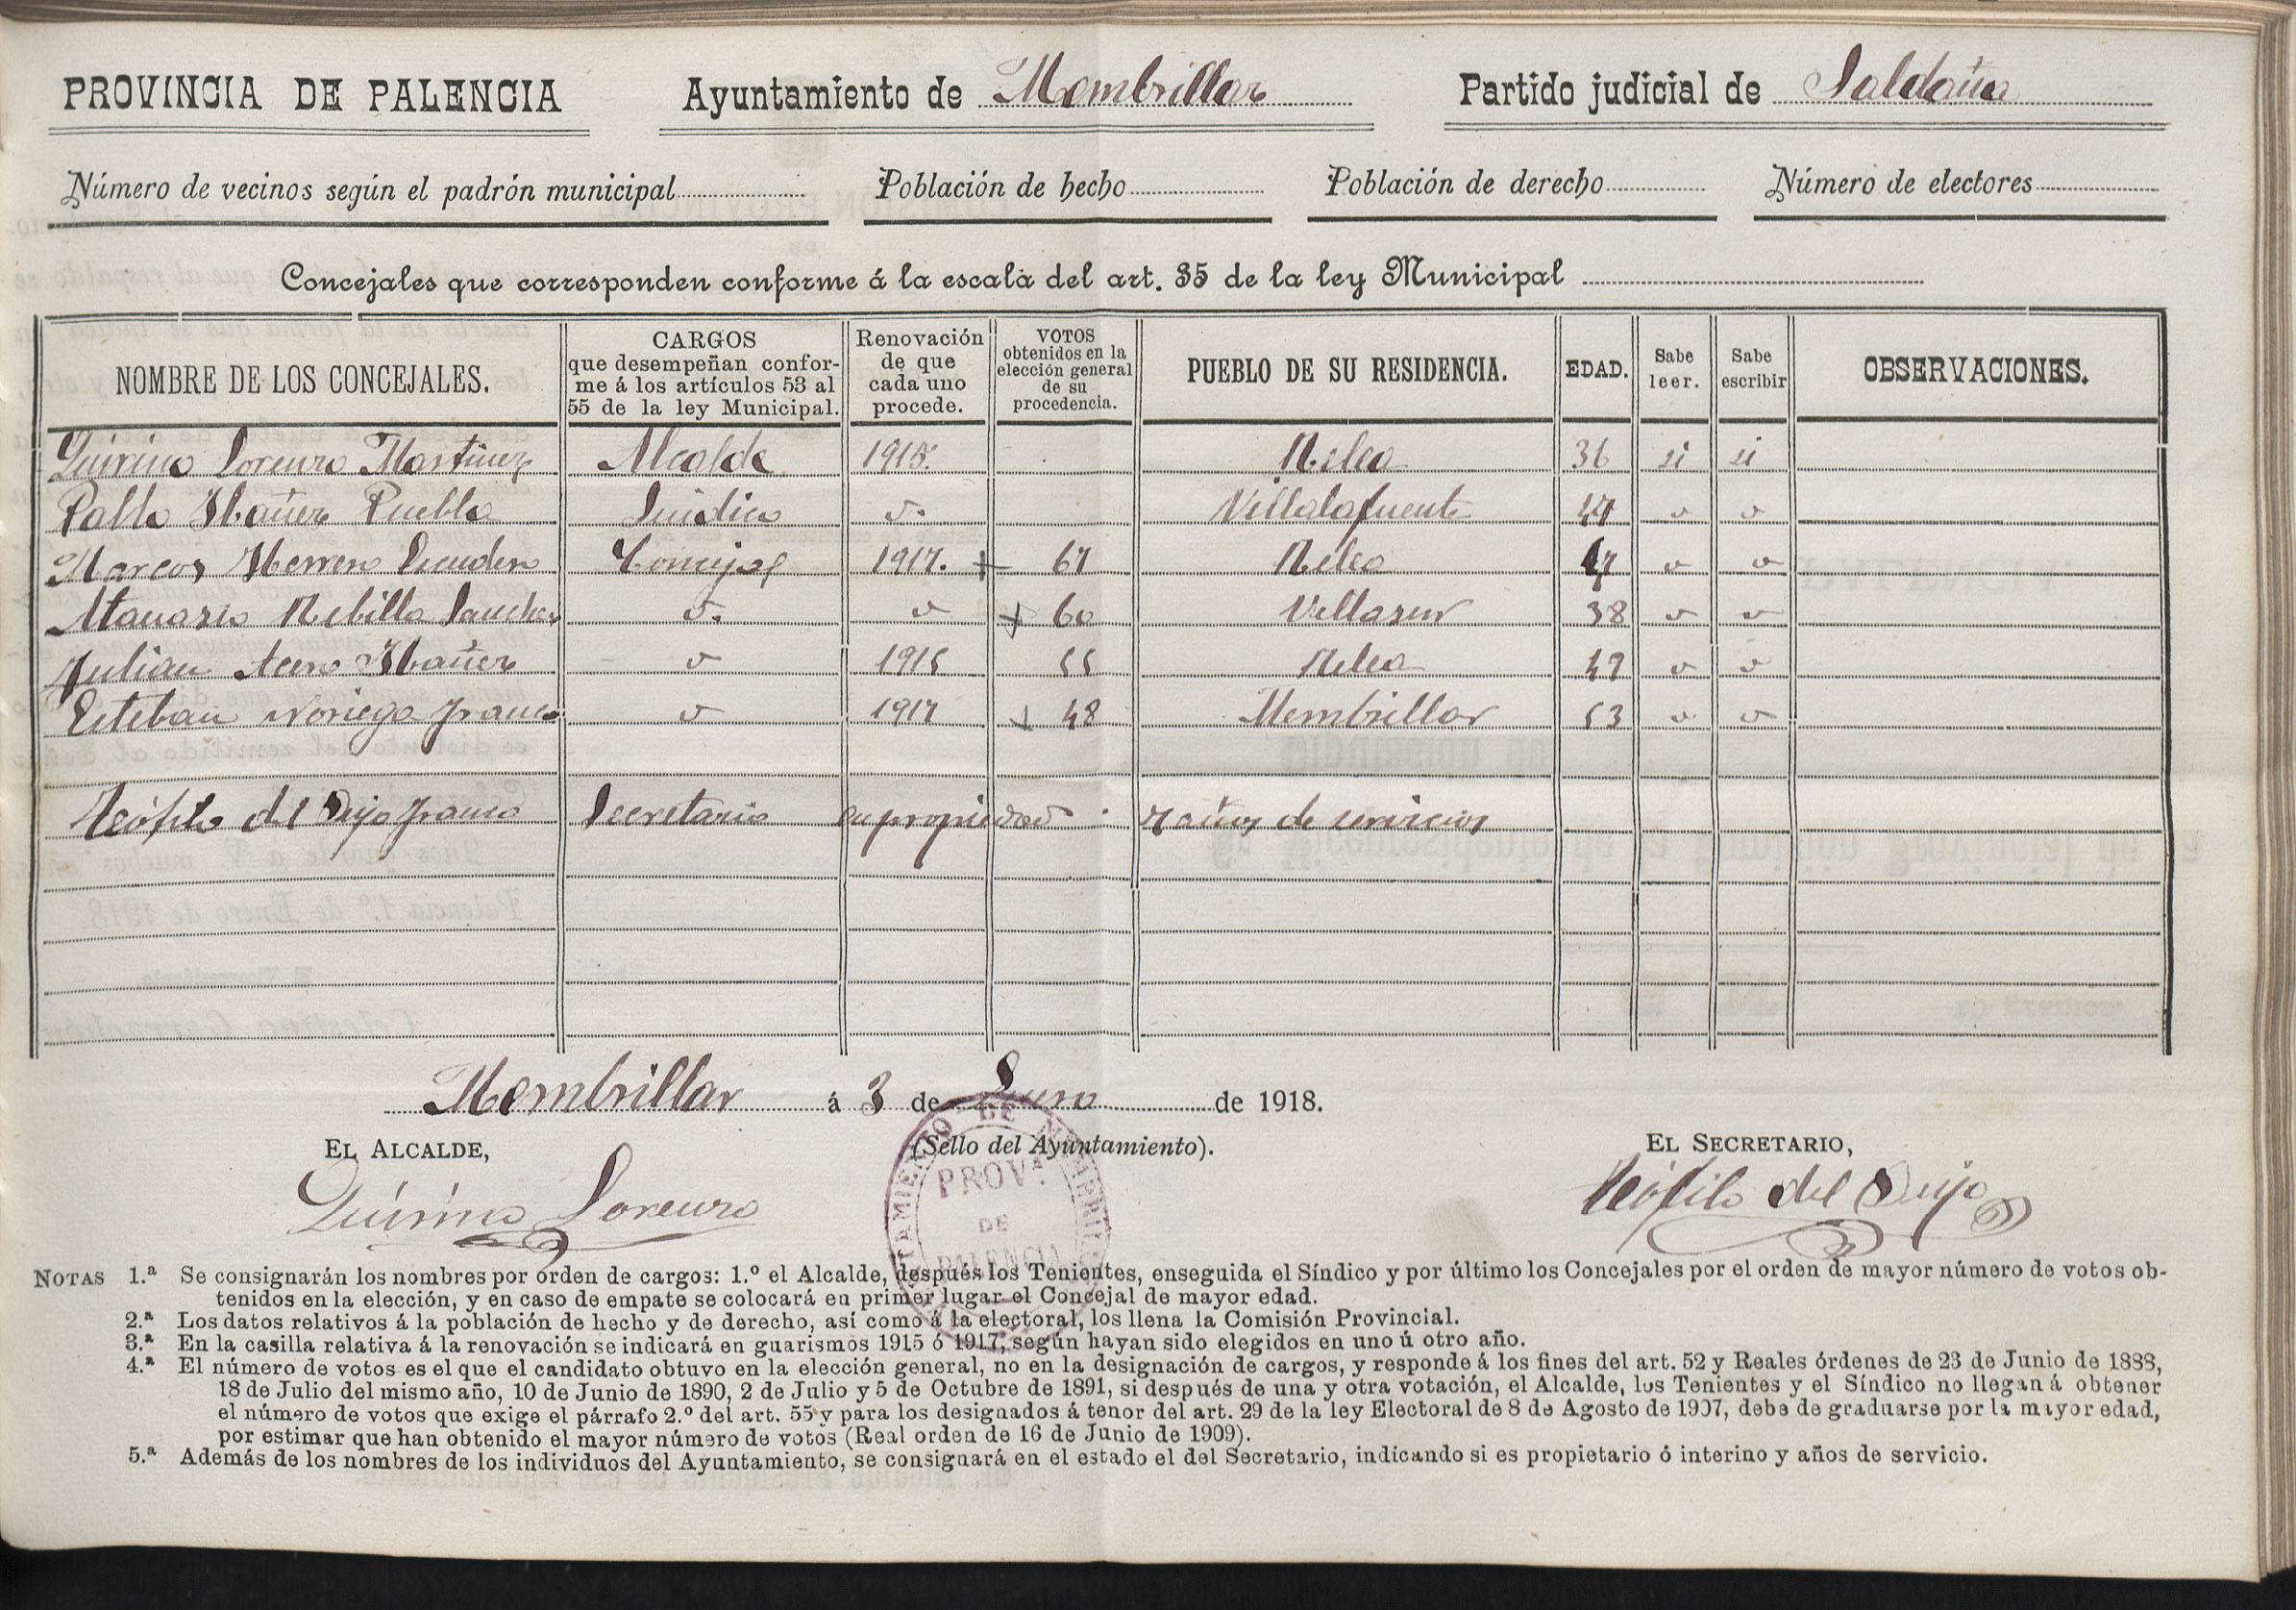 PROVINCIA DE PALENCIA Ayuntamiento de Membrillar Partido judicial de Saldaña
Número de vecinos según el padrón municipal Población de hecho Población de derecho Número de electores
Concejales que corresponden conforme á la escala del art. 35 de la ley Municipal
NOMBRE DE LOS CONCEJALES. CARGOS que desempeñan conforme á los artículos 53 al 55 de la ley Municipal. Renovación de que cada uno procede. VOTOS obtenidos en la elección general de su procedencia. PUEBLO DE SU RESIDENCIA. EDAD. Sabe leer. Sabe escribir OBSERVACIONES.
Quirino Lorenzo Martinez Alcalde 1915 Relea 36 si si
Pablo Ibañez Puebla Sindico Villalafuente
Marcos Herrero Escudero Concejal 1917. + 67 Relea
Rebilla Sanchez + 60 Villasur 38
Julian Acero Ibañez 1915 55 Relea 49
Esteban Noriega Franco 1917 + 48 Membrillar 53
Teófilo del Dujo Franco Secretario en propiedad años de servicios
Membrillar á 3 de Enero de 1918.
EL ALCALDE, (Sello del Ayuntamiento). EL SECRETARIO,
PROV.ª
DE
PALENCIA
Quirino Lorenzo Teófilo del Dujo
NOTAS 1.ª Se consignarán los nombres por orden de cargos: 1.º el Alcalde, después los Tenientes, enseguida el Síndico y por último los Concejales por el orden de mayor número de votos ob-
tenidos en la elección, y en caso de empate se colocará en primer lugar el Concejal de mayor edad.
2.ª Los datos relativos á la población de hecho y de derecho, así como á la electoral, los llena la Comisión Provincial.
3.ª En la casilla relativa á la renovación se indicará en guarismos 1915 ó 1917, según hayan sido elegidos en uno ú otro año.
4.ª El número de votos es el que el candidato obtuvo en la elección general, no en la designación de cargos, y responde á los fines del art. 52 y Reales órdenes de 23 de Junio de 1888,
18 de Julio del mismo año, 10 de Junio de 1890, 2 de Julio y 5 de Octubre de 1891, si después de una y otra votación, el Alcalde, los Tenientes y el Síndico no llegan á obtener
el número de votos que exige el párrafo 2.º del art. 55 y para los designados á tenor del art. 29 de la ley Electoral de 8 de Agosto de 1907, debe de graduarse por la mayor edad,
por estimar que han obtenido el mayor número de votos (Real orden de 16 de Junio de 1909).
5.ª Además de los nombres de los individuos del Ayuntamiento, se consignará en el estado el del Secretario, indicando si es propietario ó interino y años de servicio.